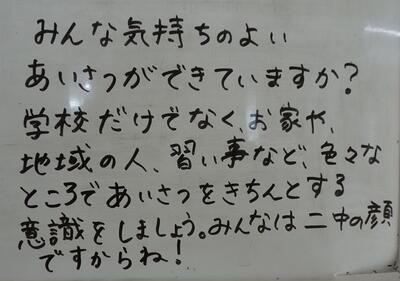 みんな気持ちのよい
あいさつができていますか?
学校だけでなく、お家や、
地域の人、習い事など、色々な
ところであいさつをきちんとする
意識をしましょう。みんなは二中の顔
ですからね!